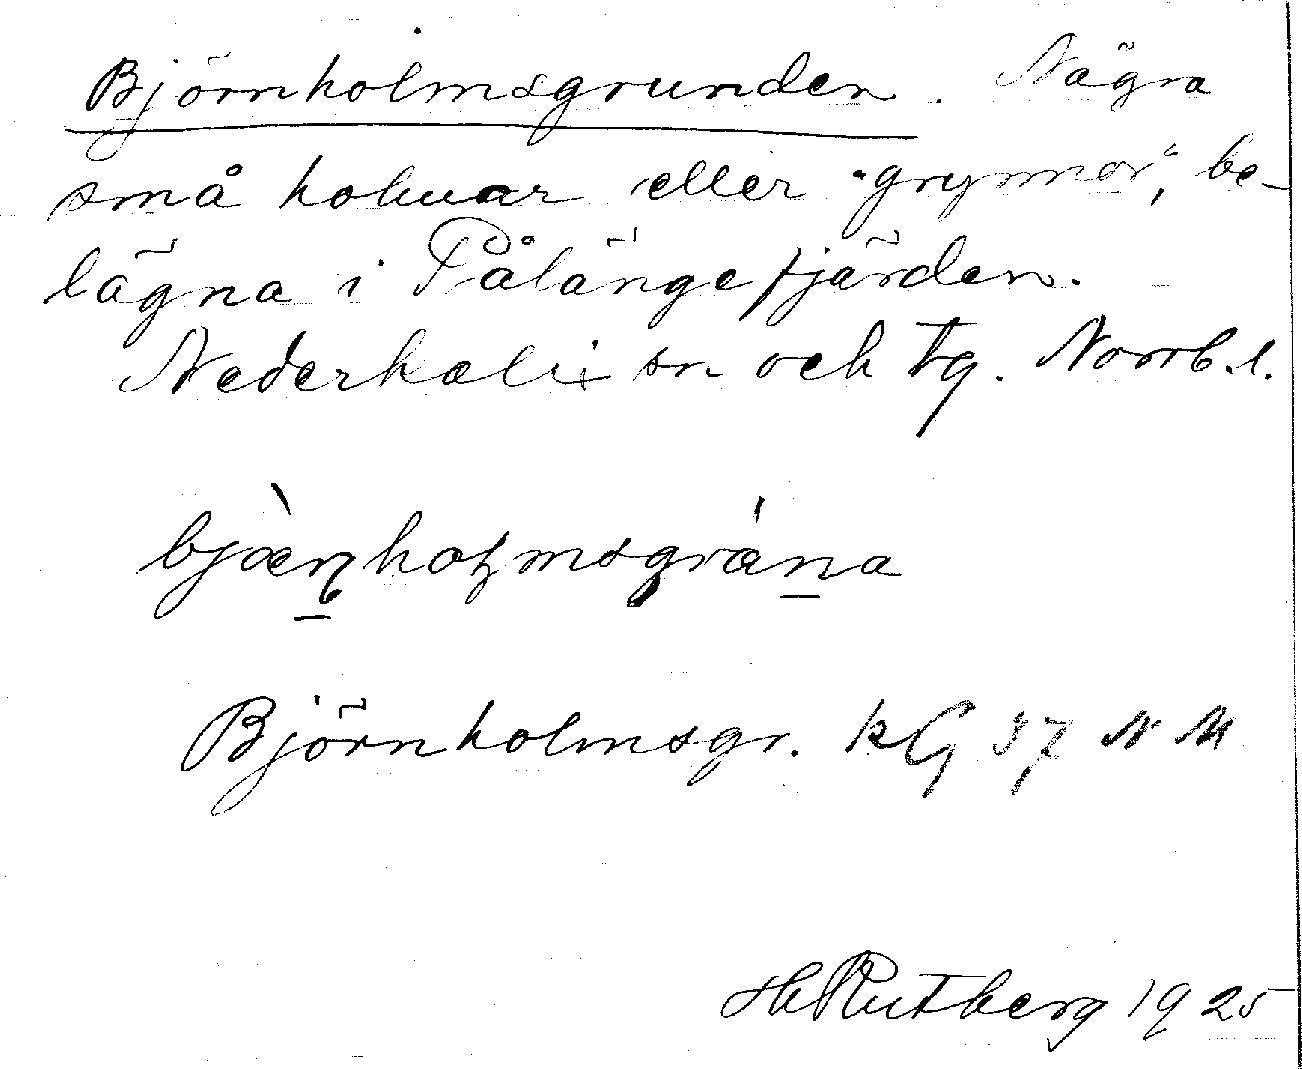 Björnholmsgrunden. Några
små holmar eller "grynnor", be-
lägna i Pålängefjärden.
Nederkalix sn och tg. Norrb. l.
bjæ̀ṇhoļmsgrána
Björnholmsgr. kG 57 N M
H Rutberg 1925